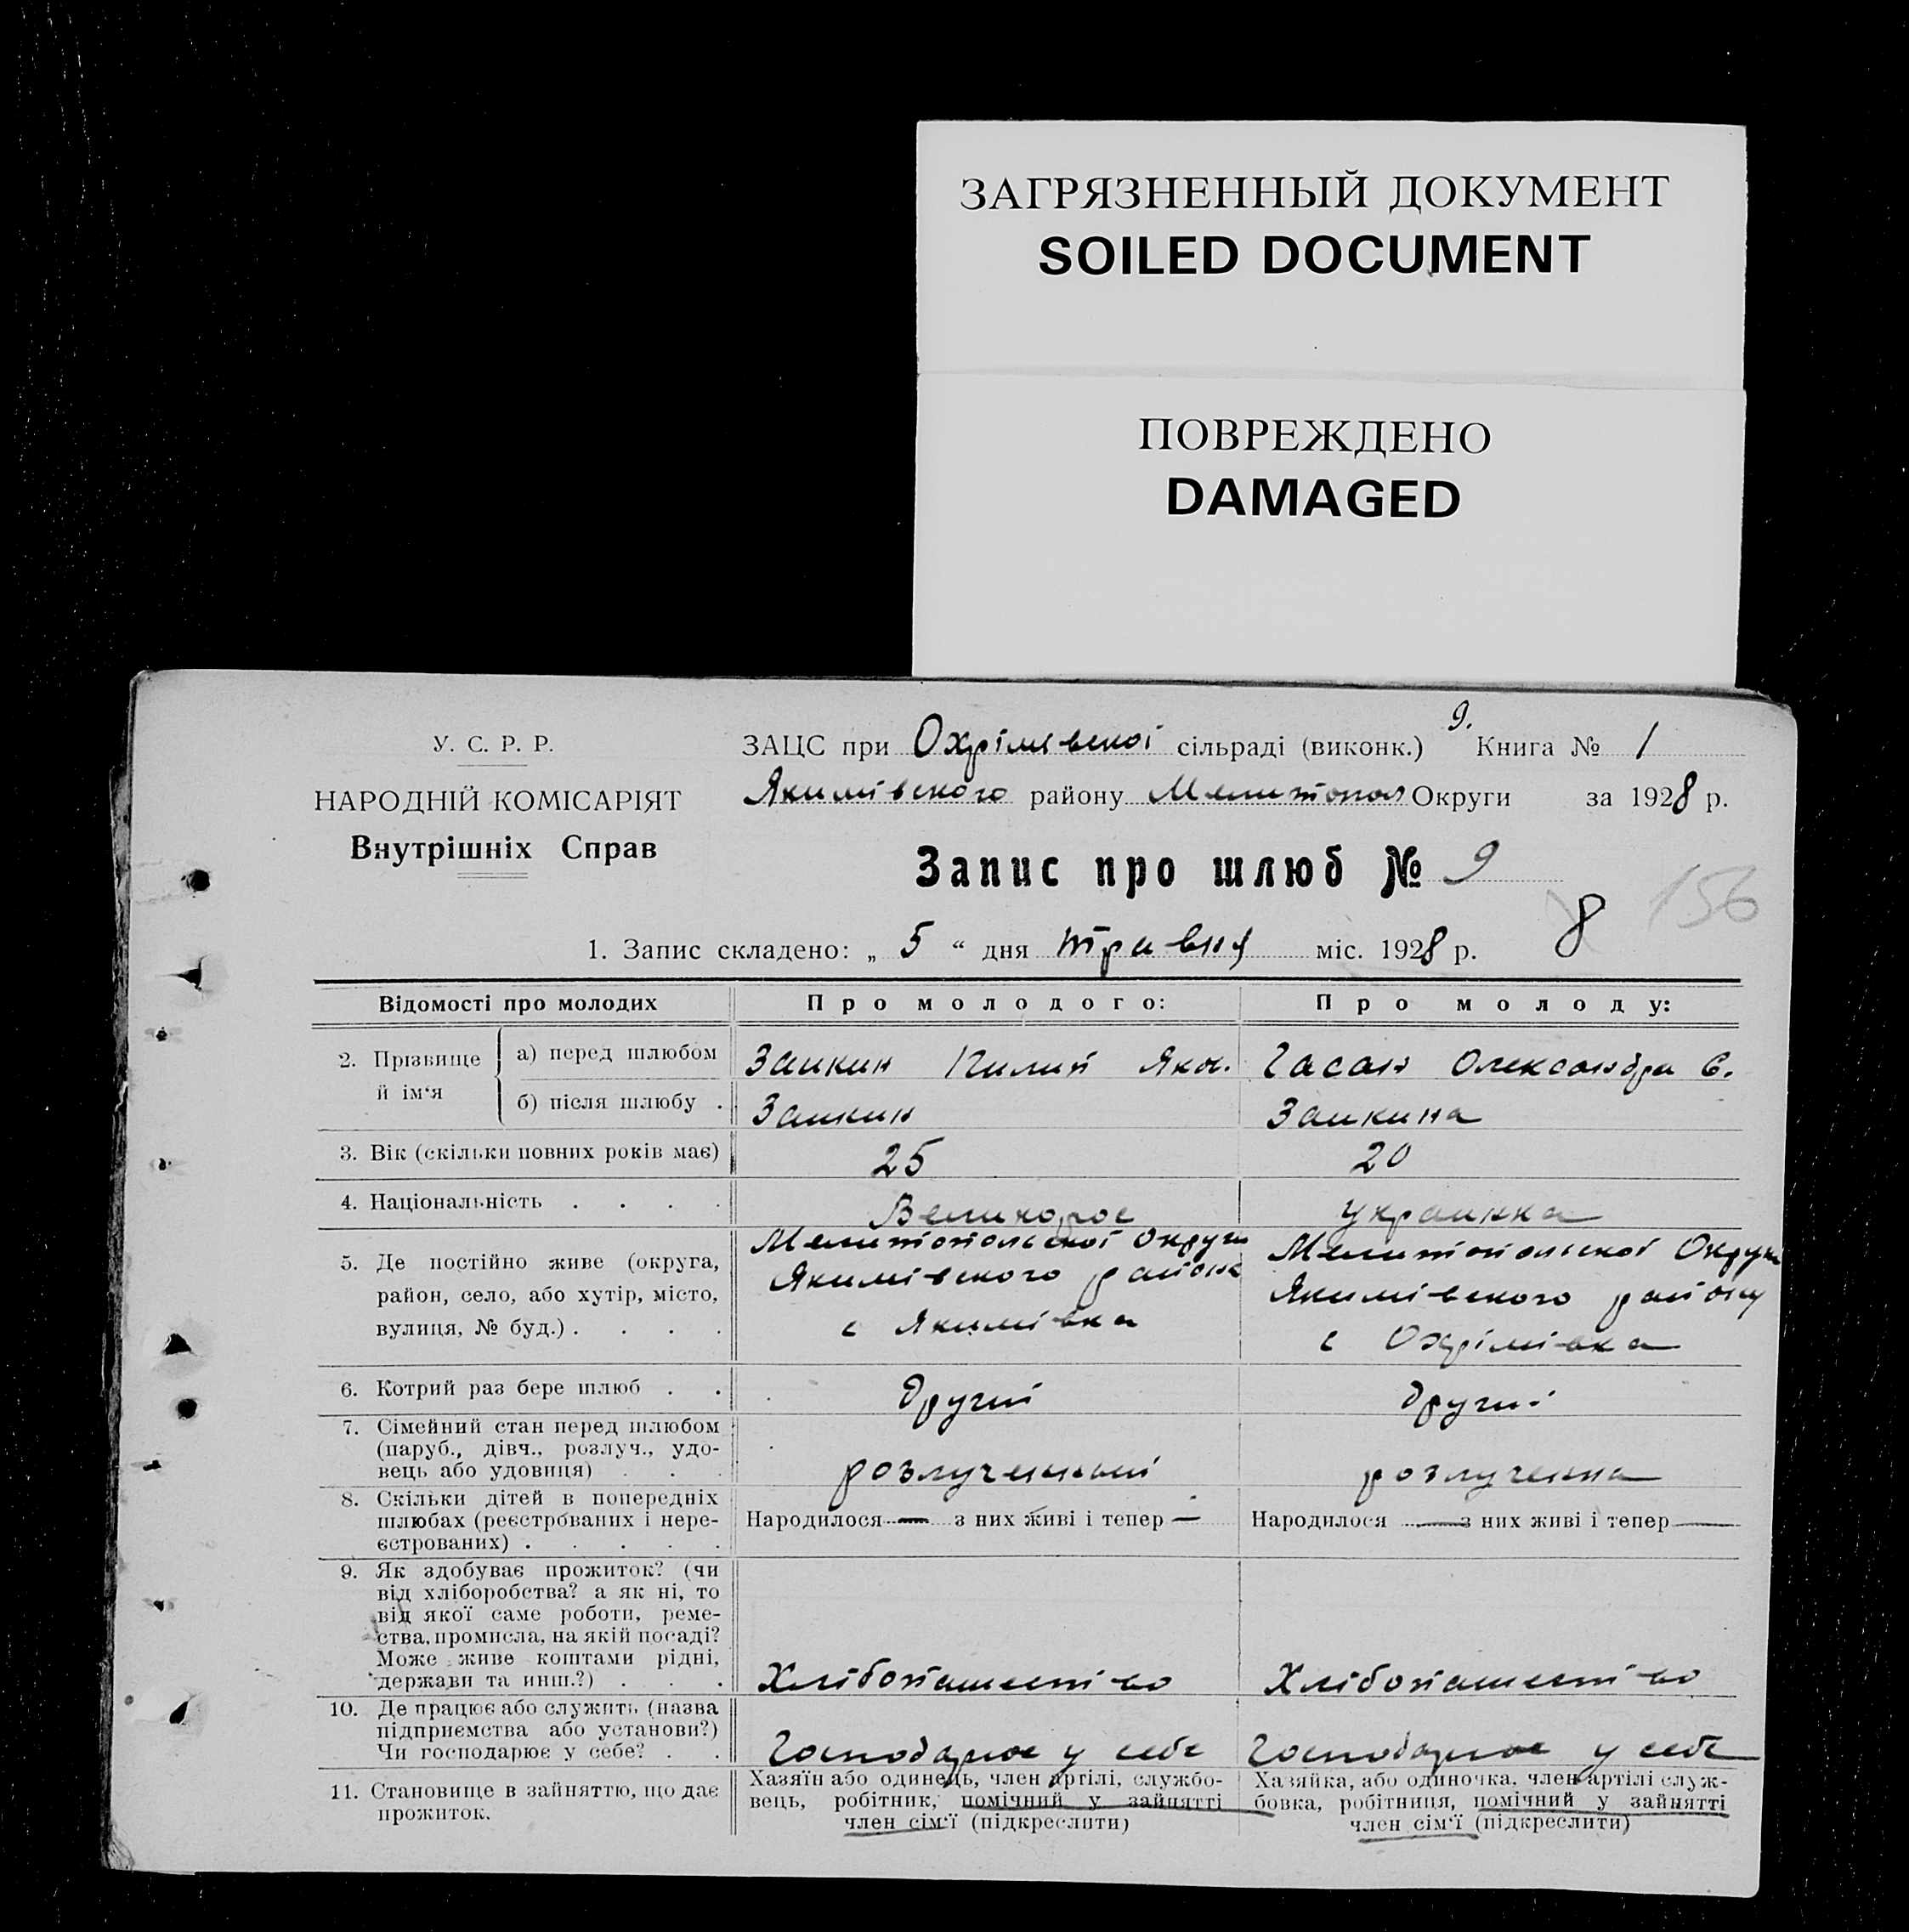 ЗАГРЯЗНЕННЫЙ ДОКУМЕНТ
SOILED DOCUMENT
ПОВРЕЖДЕНО
DAMAGED
У. С. Р. Р.
НАРОДНІЙ КОМІСАРІЯТ
Внутрішніх Справ
9.
ЗАЦС при Охрімівської сільраді (виконк.) Книга № 1
Якимівського району Мелитопол Округи за 1928 р.
Запис про шлюб № 9
8 156
1. Запис складено: „ 5 “ дня травня міс. 1928 р.
Відомості про молодих Про молодого: Про молоду:
2. Прізвище й ім‘я
а) перед шлюбом Заикин Пилип Яков. Гасан Олександра
б) після шлюбу . Заикин Заикина
3. Вік (скільки повних років має) 25 20
4. Національність . . . . Великорос украинка
5. Де постійно живе (округа,
район, село, або хутір, місто,
вулиця, № буд.) . . . .
Мелитопольської Округи
Якимівського району
с Якимівка
Мелитопольської Округи
Якимівського району
с Охрімівка
6. Котрий раз бере шлюб . . другий другий
7. Сімейний стан перед шлюбом
(паруб., дівч., розлуч., удо-
вець або удовиця) . . .
розлученный розлученна
8. Скільки дітей в попередніх
шлюбах (реєстрованих і нере-
єстрованих) . . . . .
Народилося — з них живі і тепер —
Народилося — з них живі і тепер —
9. Як здобуває прожиток? (чи
від хліборобства? а як ні, то
від якої саме роботи, реме-
ства, промисла, на якій посаді?
Може живе коштами рідні,
держави та инш.?) . . .
Хлібопашество Хлібопашество
10. Де працює або служить (назва
підприємства або установи?)
Чи господарює у себе? . .
Господарює у себе Господарює у себе
11. Становище в зайняттю, що дає
прожиток.
Хазяїн або одинець, член артілі, службо-
вець, робітник, помічний у зайнятті
член сім‘ї (підкреслити)
Хазяйка, або одиночка, член артілі служ-
бовка, робітниця, помічний у зайнятті
член сім‘ї (підкреслити)